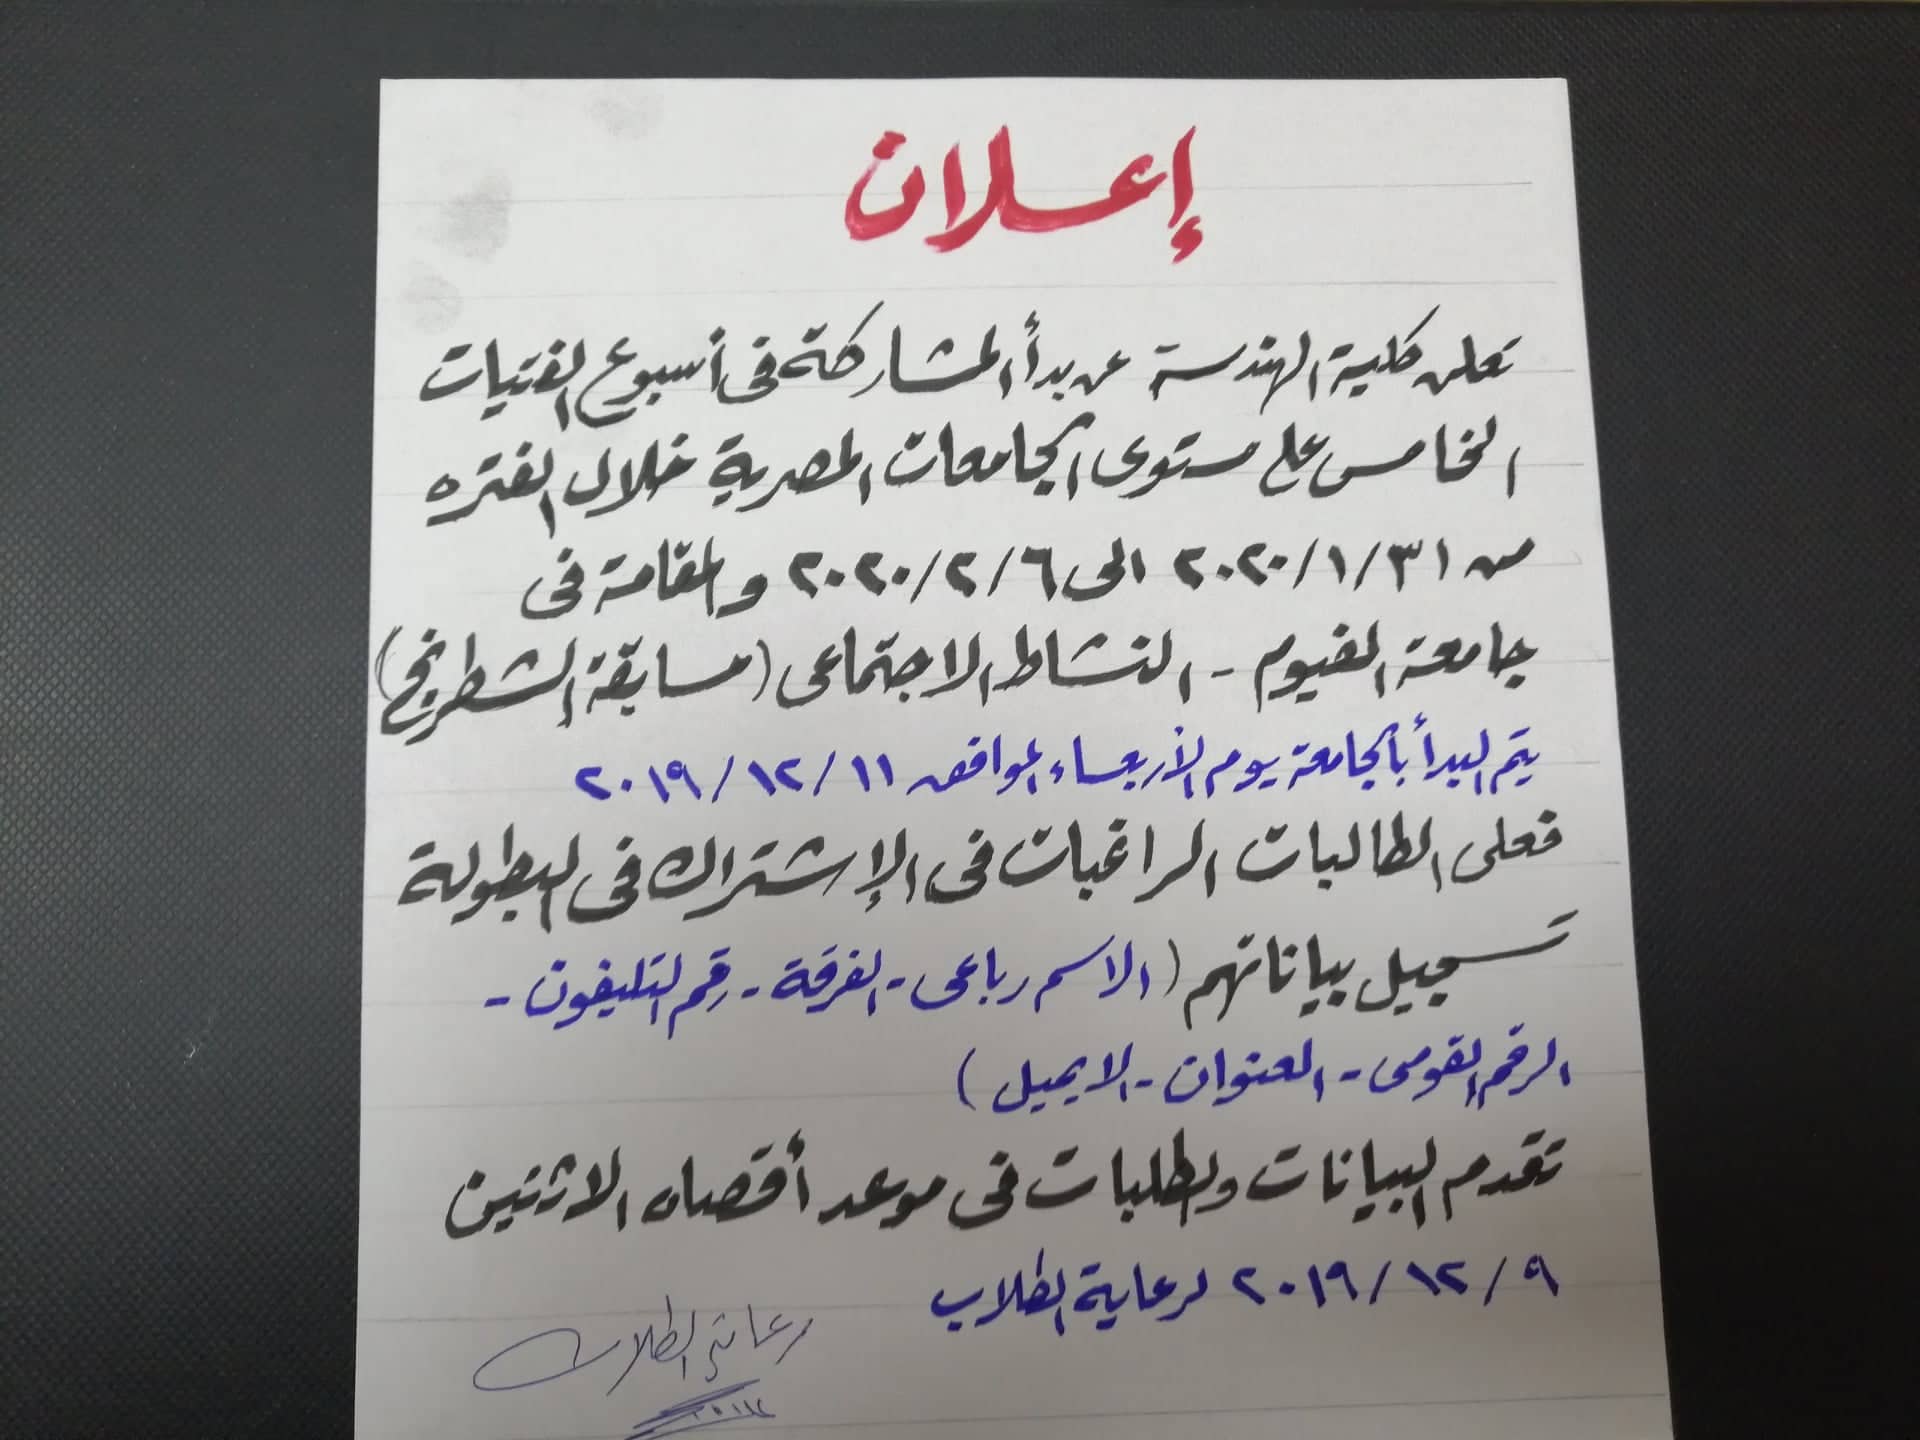 إعلان
تعلن كلية الهندسة عن بدأ المشاركة فى أسبوع الفتيات
الخامس على مستوى الجامعات المصرية خلال الفتره
من ٢٠٢٠/١/٣١ الى ٢٠٢٠/٢/٦ والمقامة فى
جامعة الفيوم - النشاط الاجتماعى (مسابقة الشطرنج)
يتم البدأ بالجامعة يوم الأربعاء الموافق ٢٠١٩/١٢/١١
فعلى الطالبات الراغبات فى الإشتراك فى البطولة
تسجيل بياناتهم (الاسم رباعى - الفرقة - رقم التليفون -
الرقم القومى - العنوان - الايميل)
تقدم البيانات والطلبات فى موعد أقصاه الاثنين
٢٠١٩/١٢/٩ لرعاية الطلاب
رعاية الطلاب